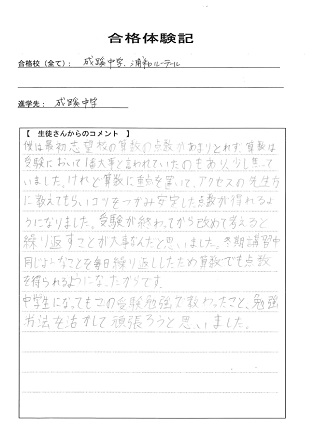 合格体験記
合格校（全て）： 成蹊中学、浦和ルーテル
進学先： 成蹊中学
【 生徒さんからのコメント 】
僕は最初志望校の算数の点数があまりとれず、算数は
受験において1番大事と言われていたのもあり、少し焦って
いました。けれど算数に重点を置いて、アクセスの先生方
に教えてもらいコツをつかみ安定した点数が得れるよ
うになりました。受験が終わってから改めて考えると
繰り返すことが大事なんだと思いました。冬期講習中
同じようなことを毎日繰り返ししたため算数でも点数
を得られるようになったからです。
中学生になってもこの受験勉強で教わったこと、勉強
方法を活かして頑張ろうと思いました。